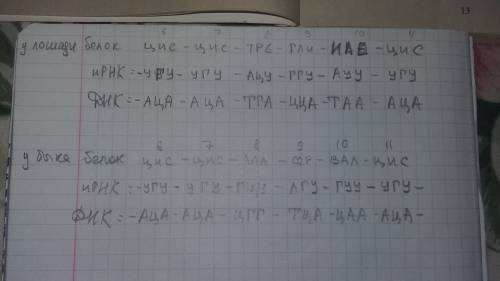 13
6 7 8 9 10 11
у лошади белок ЦИС – ЦИС – ТРЕ – ГЛИ – ИЛЕ – ЦИС
иРНК = -УГУ- УГУ – АЦУ – ГГУ – АУУ – УГУ
ДНК = -АЦА – АЦА – ТГА – ЦЦА – ТАА – АЦА
6 7 8 9 10 11
у быка белок ЦИС – ЦИС – АЛА – СЕР – ВАЛ – ЦИС
иРНК = -УГУ- УГУ – – АГУ – ГУУ – УГУ –
ДНК = -АЦА – АЦА – ЦГГ – ТЦА – ЦАА – АЦА –